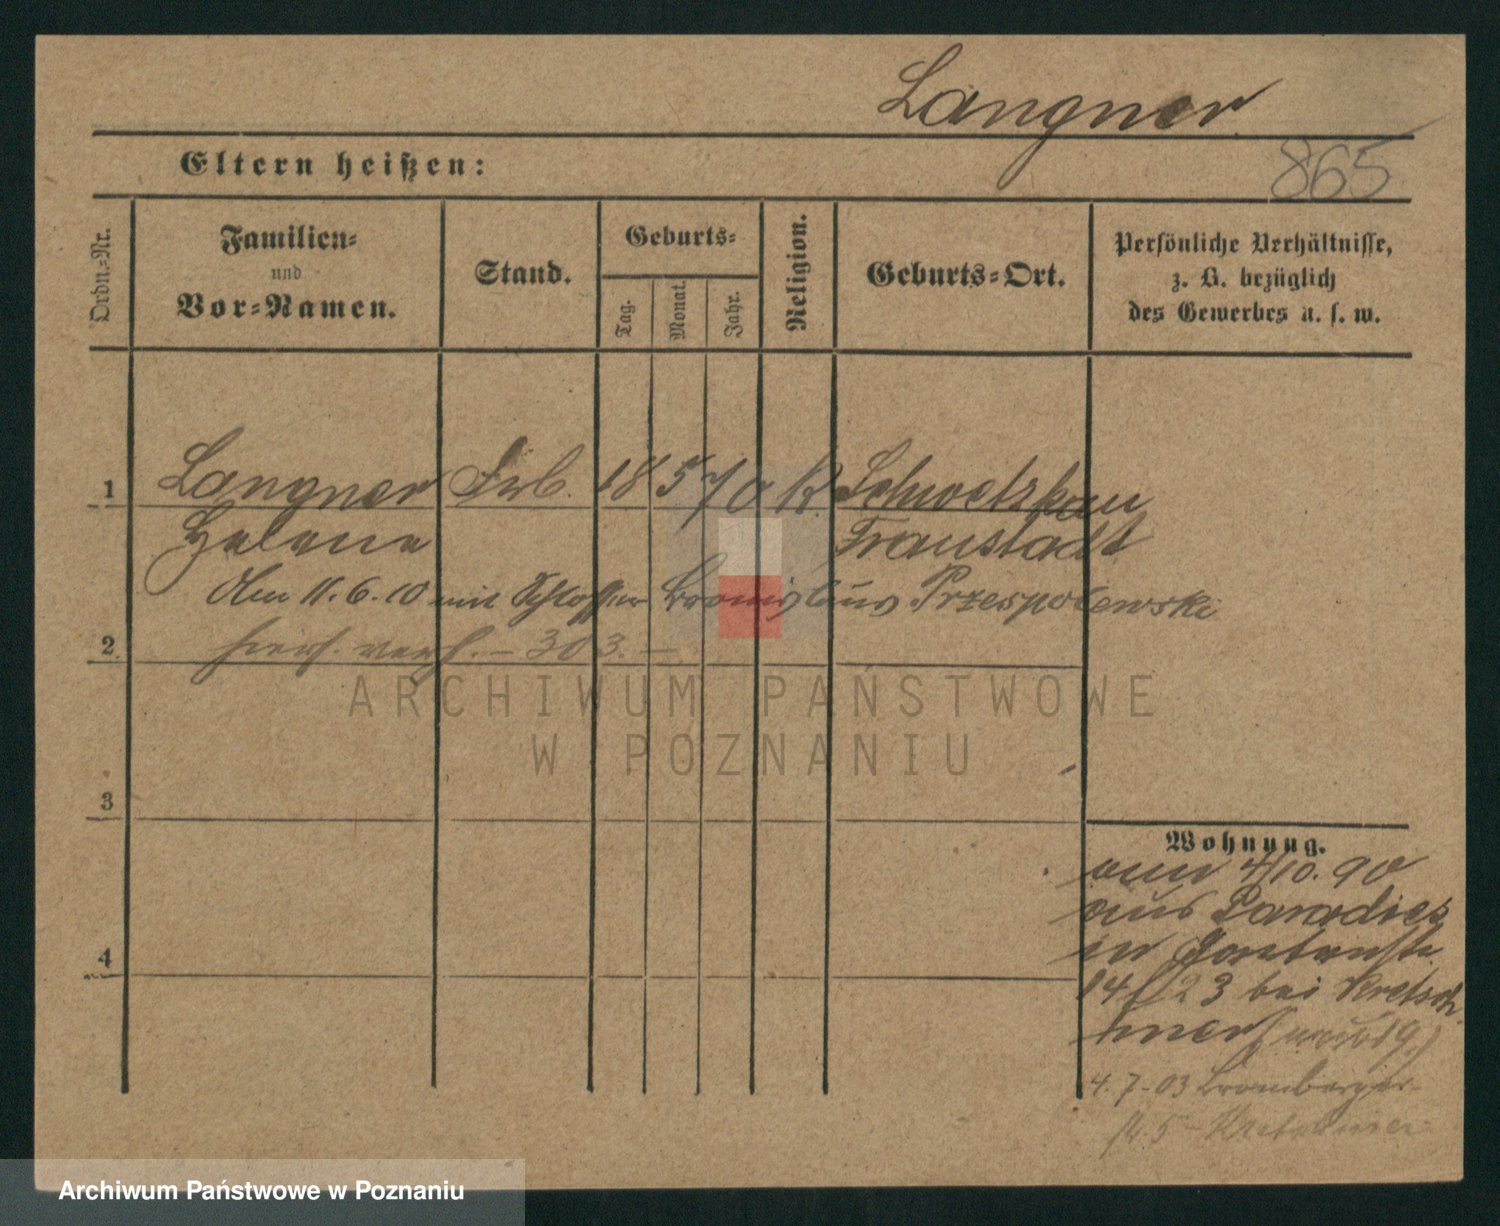 Langner
Eltern heißen:
865
Ordn.-Nr.
Familien-
und
Vor-Namen.
Stand.
Geburts-
Tag.
Monat.
Jahr.
Religion.
Geburts-Ort.
Persönliche Verhältnisse,
z. B. bezüglich
des Gewerbes u. s. w.
1
Langner
18 5 70
K
Schwetzkau
Helene
Fraustadt
Am 11.6.10 mit Schlosser Bronislaus Przespolewski
2
hier verh. – 303. –
ARCHIWUM PAŃSTWOWE
W POZNANIU
3
Wohnung.
4/10. 90
aus Paradies
in Gartenstr.
4
14 23 bei Kretsch
mer
4.7.03 Bromberger
Archiwum Państwowe w Poznaniu